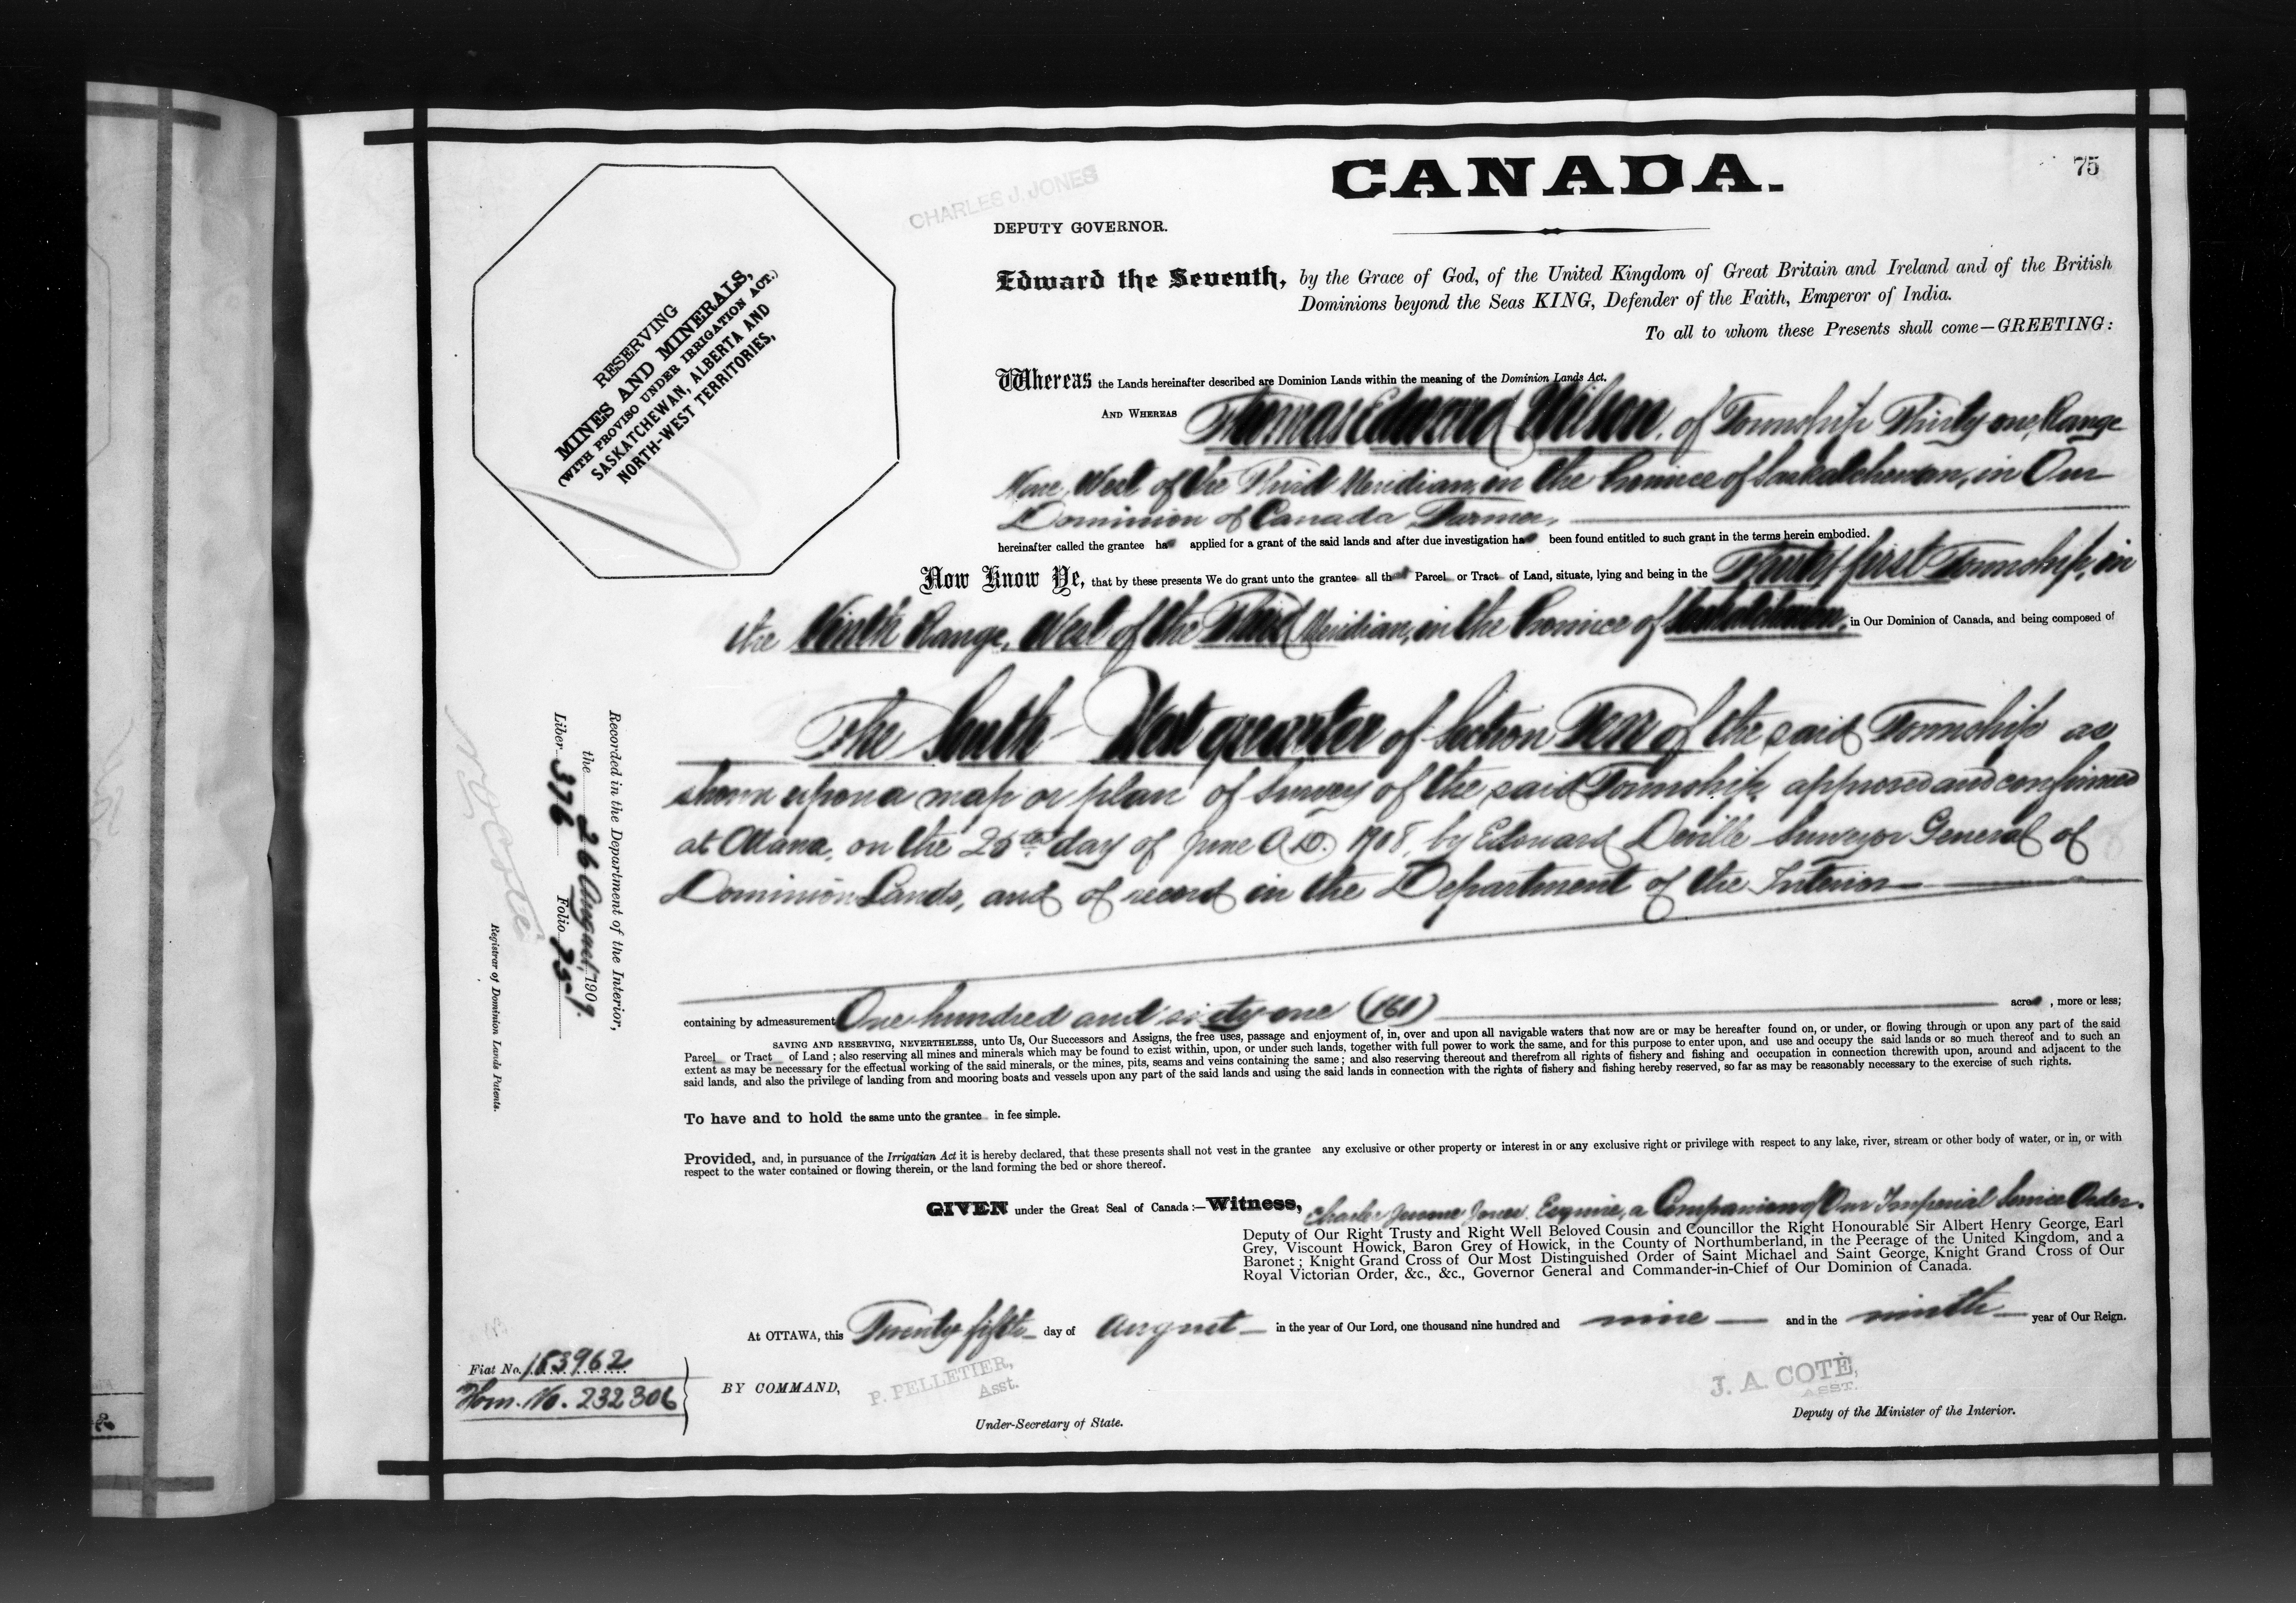 75
CANADA.
CHARLES J. JONES
DEPUTY GOVERNOR.
Edward the Seventh, by the Grace of God, of the United Kingdom of Great Britain and Ireland and of the British
Dominions beyond the Seas KING, Defender of the Faith, Emperor of India.
To all to whom these Presents shall come—GREETING:
RESERVING
MINES AND MINERALS,
(WITH PROVISO UNDER IRRIGATION ACT.)
SASKATCHEWAN, ALBERTA AND
NORTH-WEST TERRITORIES,
Whereas the Lands hereinafter described are Dominion Lands within the meaning of the Dominion Lands Act.
AND WHEREAS Thomas Edward Wilson, of Township Thirty-one, Range
Nine, West of the Third Meridian, in the Province of Saskatchewan, in Our
Dominion of Canada Farmer,
hereinafter called the grantee has applied for a grant of the said lands and after due investigation has been found entitled to such grant in the terms herein embodied.
Now Know Ye, that by these presents We do grant unto the grantee all that Parcel or Tract of Land, situate, lying and being in the Thirty first Township, in
the Ninth Range, West of the Third Meridian, in the Province of Saskatchewan, in Our Dominion of Canada, and being composed of
The West quarter of Section Ten of the said Township as
shown upon a map or plan of survey of the said Township, approved and confirmed
at Ottawa, on the day of June A.D. 1908, by Edouard Deville Surveyor General of
Dominion Lands, and of record in the Department of the Interior
containing by admeasurement One hundred and sixty one (161) acres, more or less;
SAVING AND RESERVING, NEVERTHELESS, unto Us, Our Successors and Assigns, the free uses, passage and enjoyment of, in, over and upon all navigable waters that now are or may be hereafter found on, or under, or flowing through or upon any part of the said
Parcel or Tract of Land; also reserving all mines and minerals which may be found to exist within, upon, or under such lands, together with full power to work the same, and for this purpose to enter upon, and use and occupy the said lands or so much thereof and to such an
extent as may be necessary for the effectual working of the said minerals, or the mines, pits, seams and veins containing the same; and also reserving thereout and therefrom all rights of fishery and fishing and occupation in connection therewith upon, around and adjacent to the
said lands, and also the privilege of landing from and mooring boats and vessels upon any part of the said lands and using the said lands in connection with the rights of fishery and fishing hereby reserved, so far as may be reasonably necessary to the exercise of such rights.
To have and to hold the same unto the grantee in fee simple.
Provided, and, in pursuance of the Irrigation Act it is hereby declared, that these presents shall not vest in the grantee any exclusive or other property or interest in or any exclusive right or privilege with respect to any lake, river, stream or other body of water, or in, or with
respect to the water contained or flowing therein, or the land forming the bed or shore thereof.
GIVEN under the Great Seal of Canada:—Witness, Charles Jerome Jones, Esquire, a Companion of Our Imperial Service Order.
Deputy of Our Right Trusty and Right Well Beloved Cousin and Councillor the Right Honourable Sir Albert Henry George, Earl
Grey, Viscount Howick, Baron Grey of Howick, in the County of Northumberland, in the Peerage of the United Kingdom, and a
Baronet; Knight Grand Cross of Our Most Distinguished Order of Saint Michael and Saint George, Knight Grand Cross of Our
Royal Victorian Order, &c., &c., Governor General and Commander-in-Chief of Our Dominion of Canada.
At OTTAWA, this Twenty fifth day of August in the year of Our Lord, one thousand nine hundred and nine and in the ninth year of Our Reign.
BY COMMAND,
P. PELLETIER,
Asst.
Under-Secretary of State.
J. A. COTÉ,
ASST.
Deputy of the Minister of the Interior.
Recorded in the Department of the Interior,
the 26 August, 1909.
Liber 376 Folio 75
N. O. Coté
Registrar of Dominion Lands Patents.
Fiat No. 153962
Hom. No. 232306